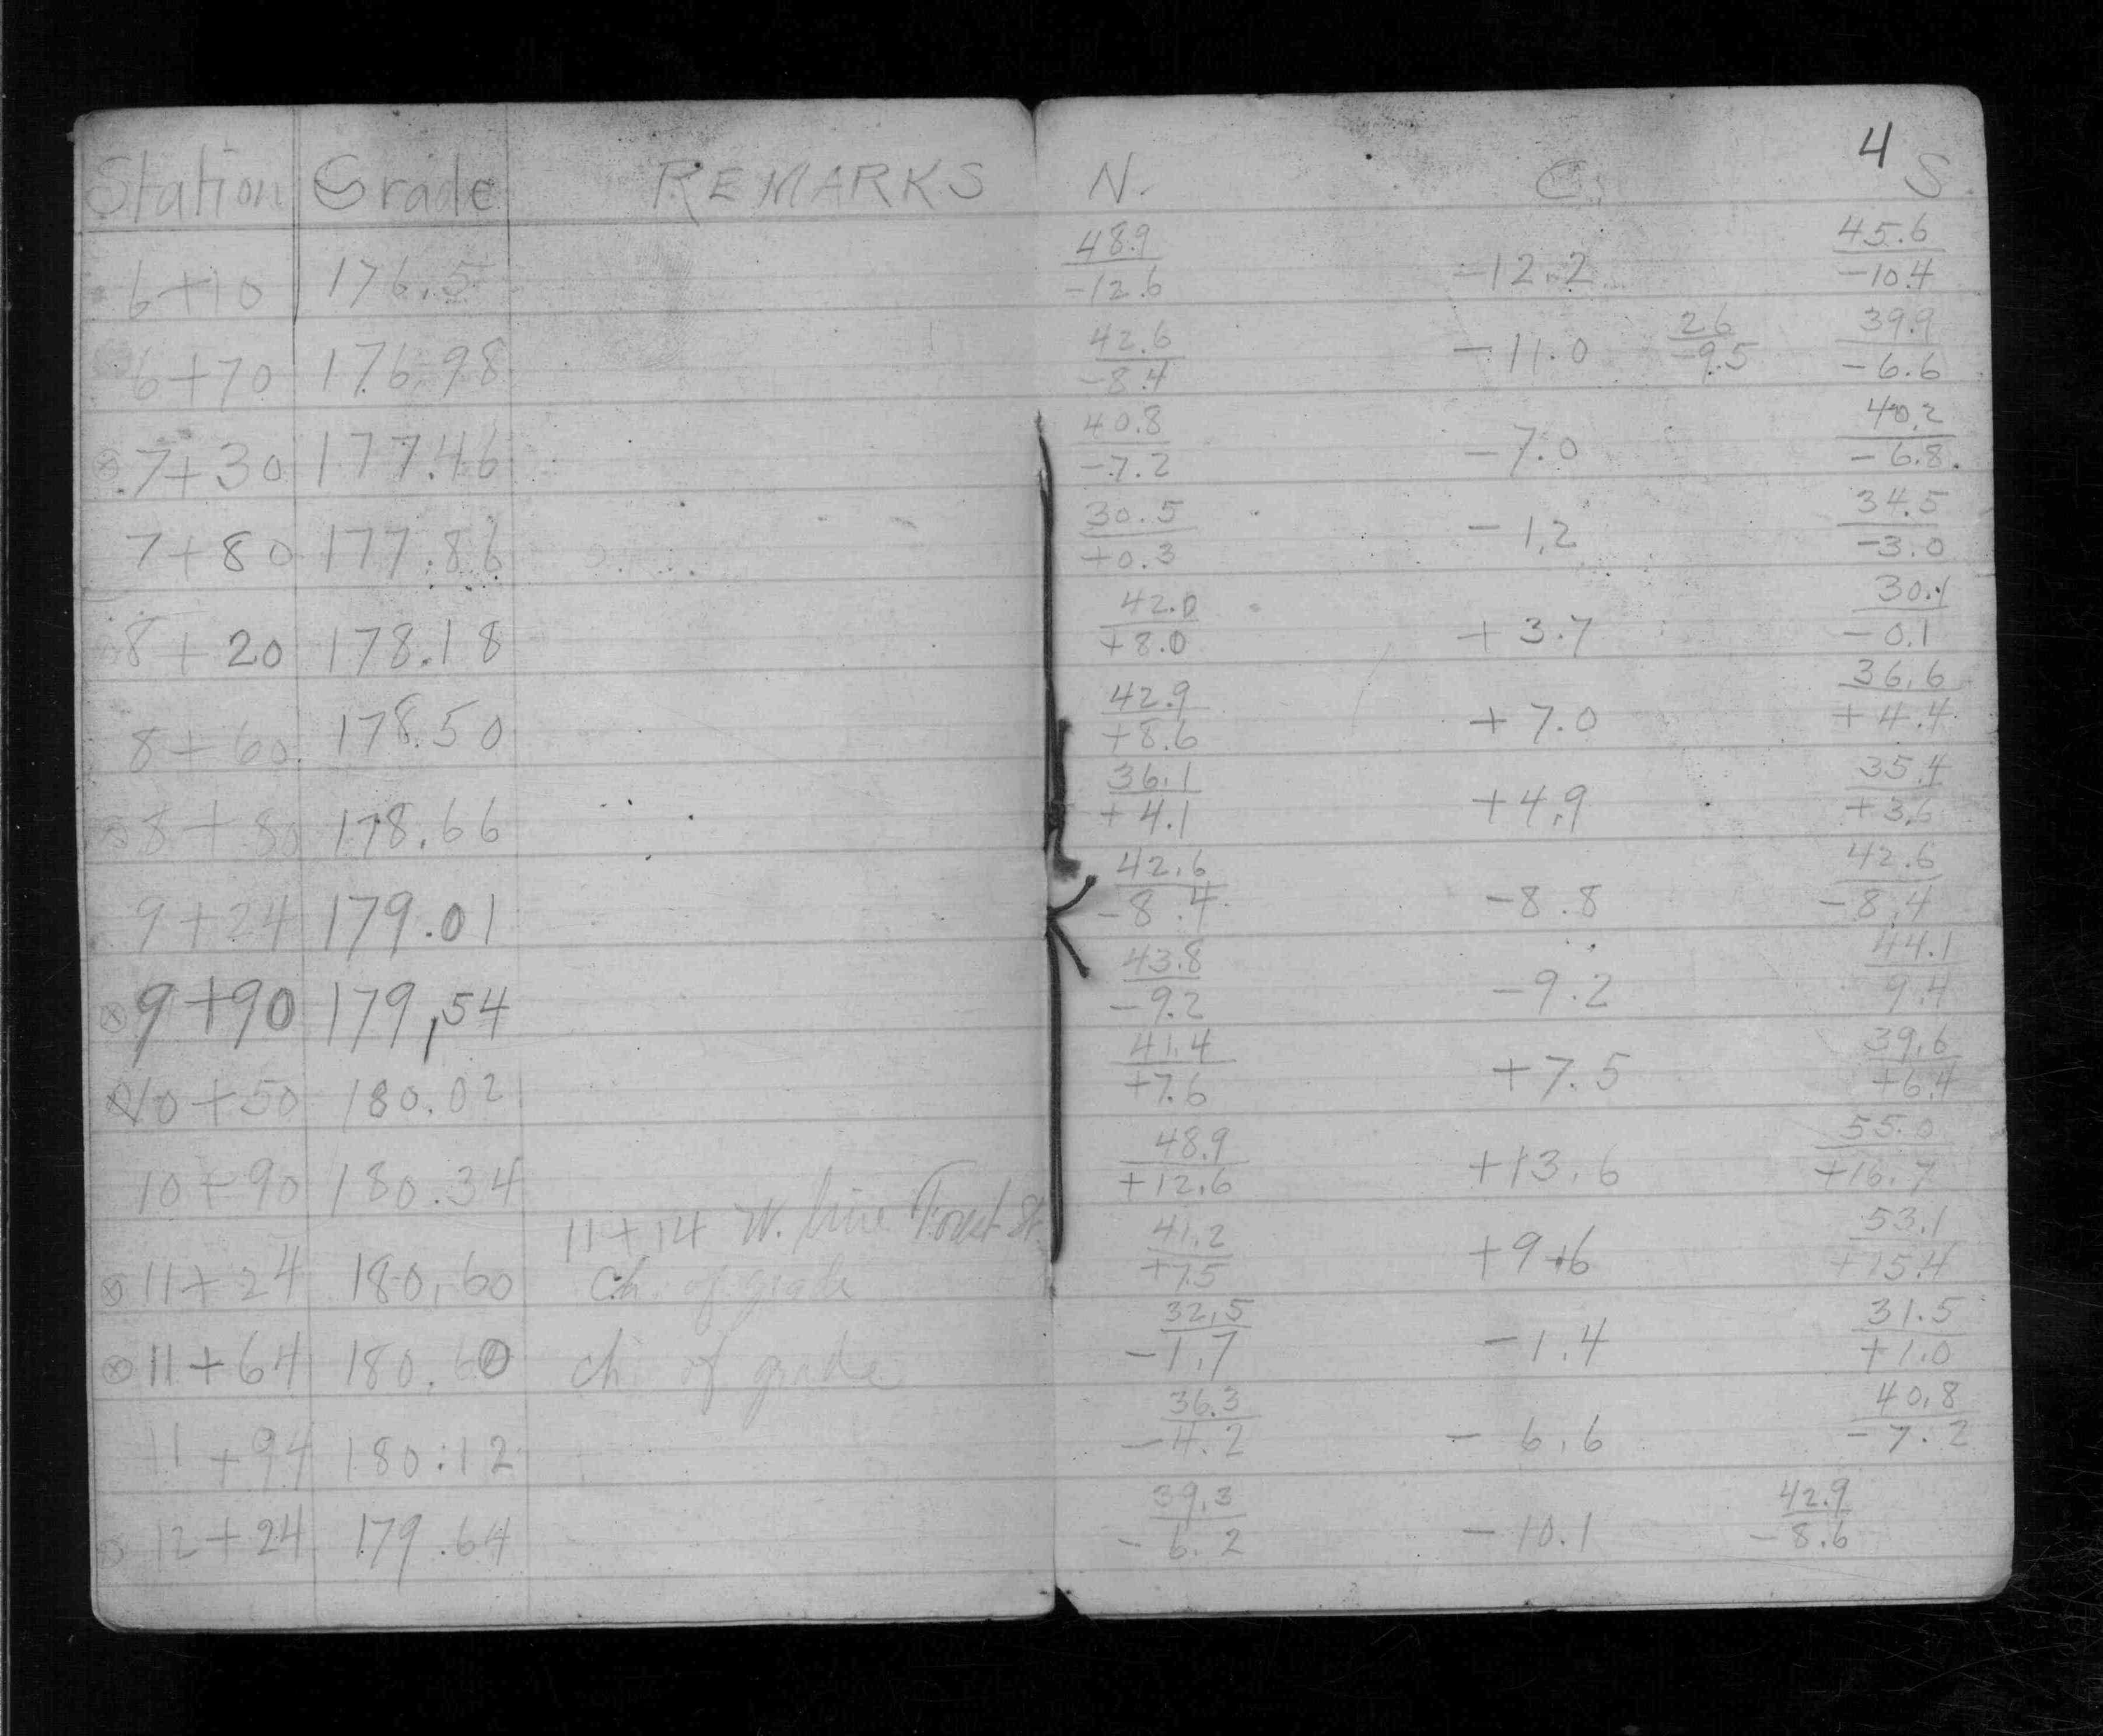 4
Station Grade REMARKS N. C. S.
6+10 176.5 48.9/-12.6 -12.2 45.6/-10.4
6+70 176.98 42.6/-8.4 -11.0 26/-9.5 39.9/-6.6
⊗ 7+30 177.46 40.8/-7.2 -7.0 40.2/-6.8
7+80 177.86 30.5/+0.3 -1.2 34.5/-3.0
8+20 178.18 42.0/+8.0 +3.7 30.1/-0.1
8+60 178.50 42.9/+8.6 +7.0 36.6/+4.4
⊗ 8+80 178.66 36.1/+4.1 +4.9 35.4/+3.6
9+24 179.01 42.6/-8.4 -8.8 42.6/-8.4
⊗ 9+90 179.54 43.8/-9.2 -9.2 44.1/9.4
⊗ 10+50 180.02 41.4/+7.6 +7.5 39.6/+6.4
10+90 180.34 48.9/+12.6 +13.6 55.0/+16.7
11+14 W. line Forest St.
⊗ 11+24 180.60 ch. of grade 41.2/+7.5 +9.6 53.1/+15.4
⊗ 11+64 180.60 ch. of grade 32.5/-1.7 -1.4 31.5/+1.0
11+94 180.12 36.3/-4.2 -6.6 40.8/-7.2
⊗ 12+24 179.64 39.3/-6.2 -10.1 42.9/-8.6